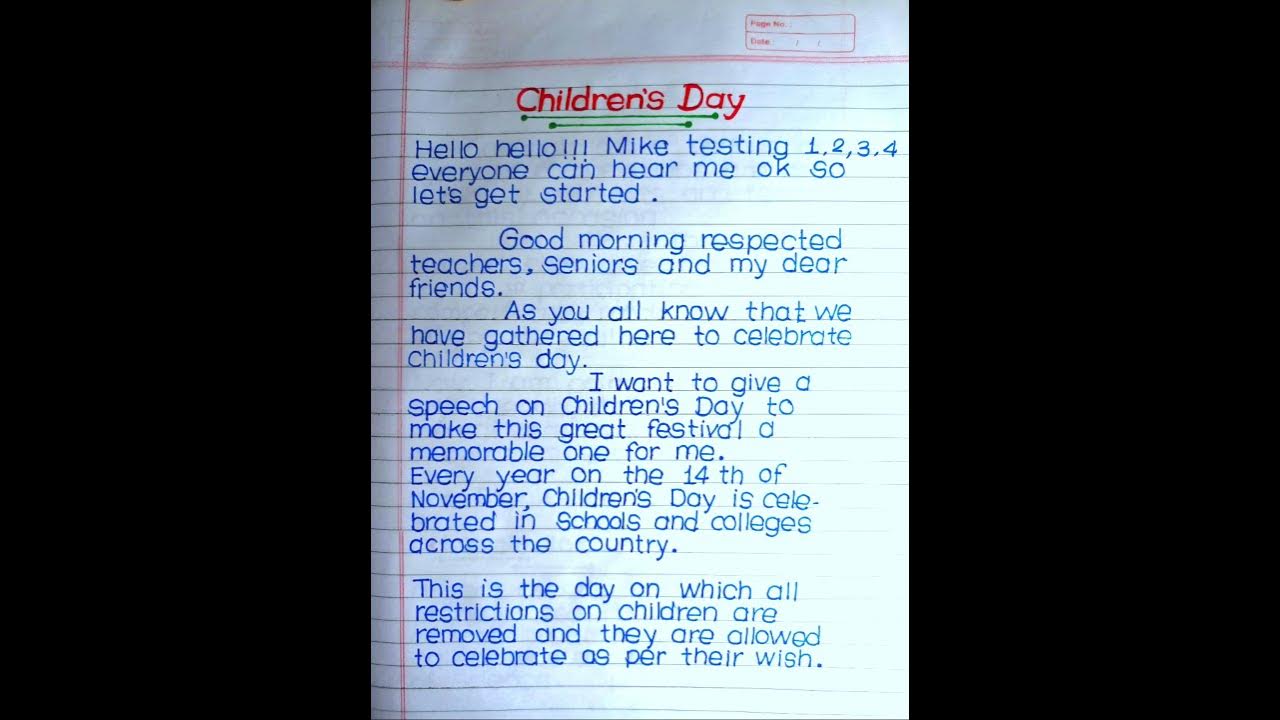 Page No. :
Date : / /
Children's Day
Hello hello!!! Mike testing 1,2,3,4
everyone can hear me ok so
let's get started.
Good morning respected
teachers, seniors and my dear
friends.
As you all know that we
have gathered here to celebrate
Children's day.
I want to give a
speech on Children's Day to
make this great festival a
memorable one for me.
Every year on the 14 th of
November, Children's Day is cele-
brated in schools and colleges
across the country.
This is the day on which all
restrictions on children are
removed and they are allowed
to celebrate as per their wish.